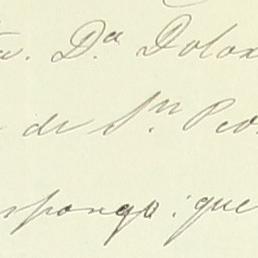 Dª Dolor
de Sn. Pedr
esponga: que